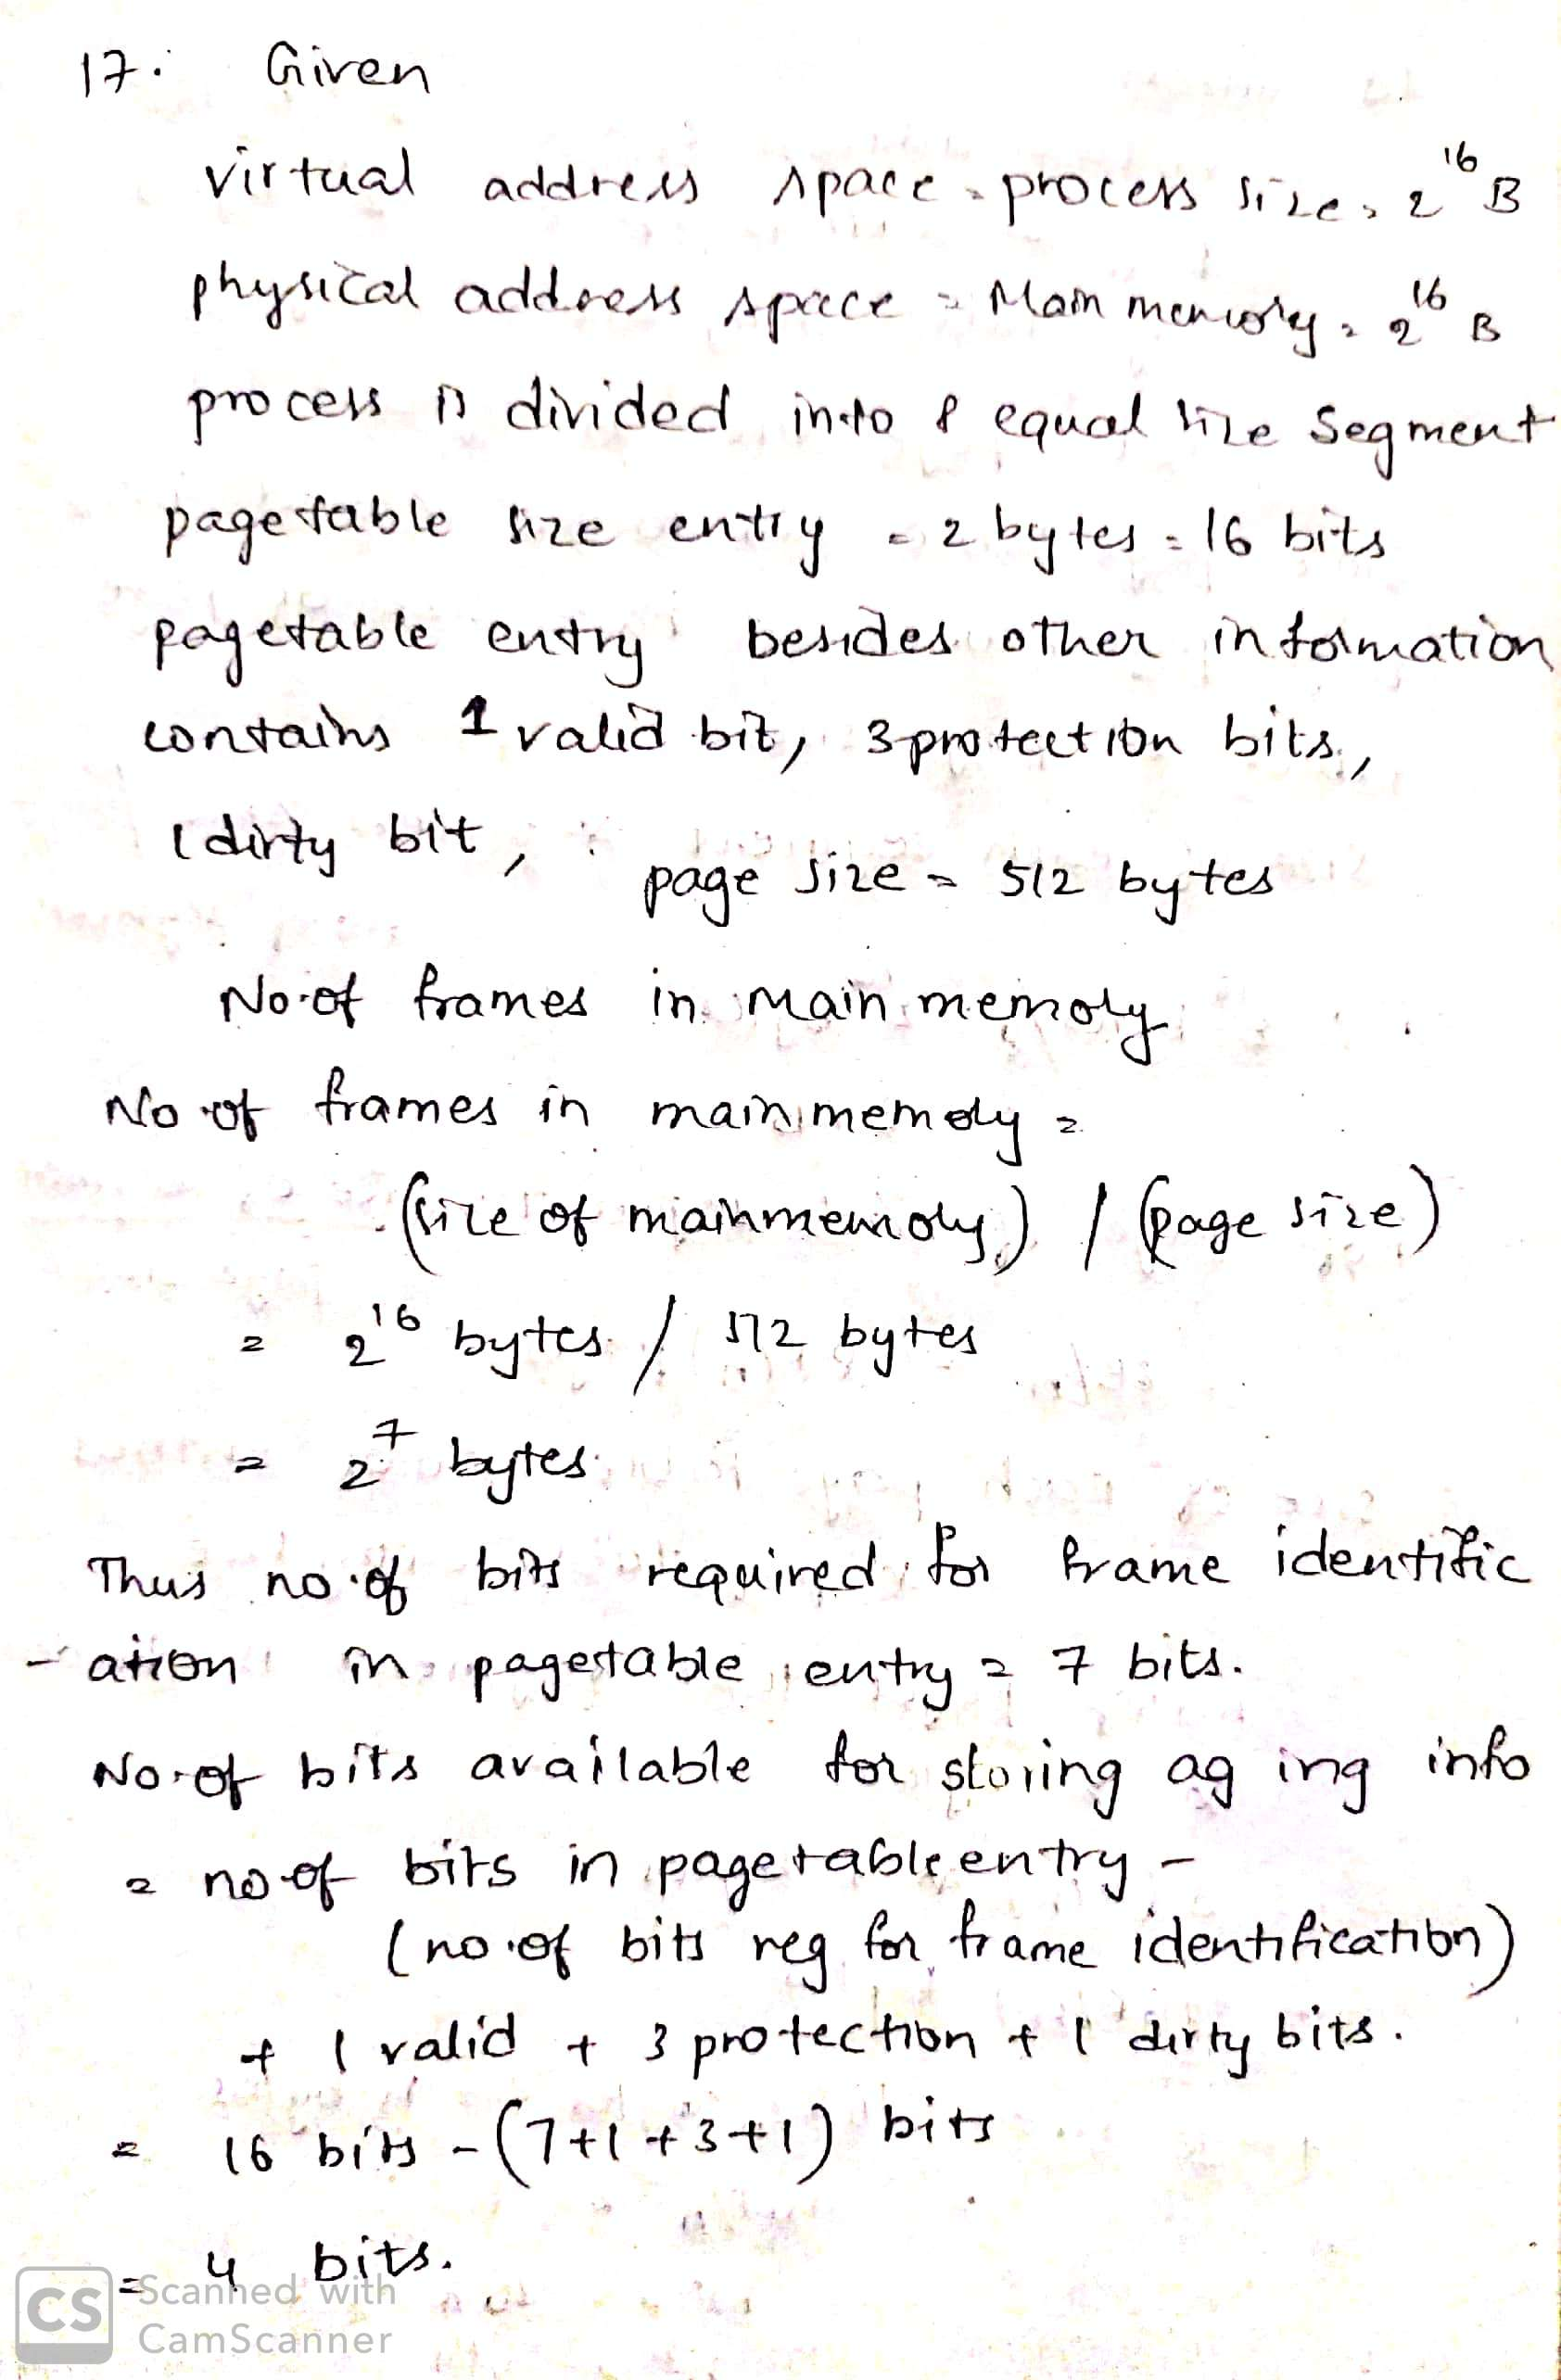 17. Given
virtual address space = process size = 2^16 B
physical address space = Main memory = 2^16 B
process is divided into 8 equal size segment
pagetable size entry = 2 bytes = 16 bits
pagetable entry besides other information
contains 1 valid bit, 3 protection bits,
1 dirty bit, page size = 512 bytes
No. of frames in main memory
No of frames in main memory =
(size of mainmemory) / (page size)
= 2^16 bytes / 512 bytes
= 2^7 bytes
Thus no. of bits required for frame identific
-ation in pagetable entry = 7 bits.
No. of bits available for storing aging info
= no of bits in pagetable entry -
(no. of bits req for frame identification)
+ 1 valid + 3 protection + 1 dirty bits.
= 16 bits - (7+1+3+1) bits
= 4 bits.
CS Scanned with
CamScanner